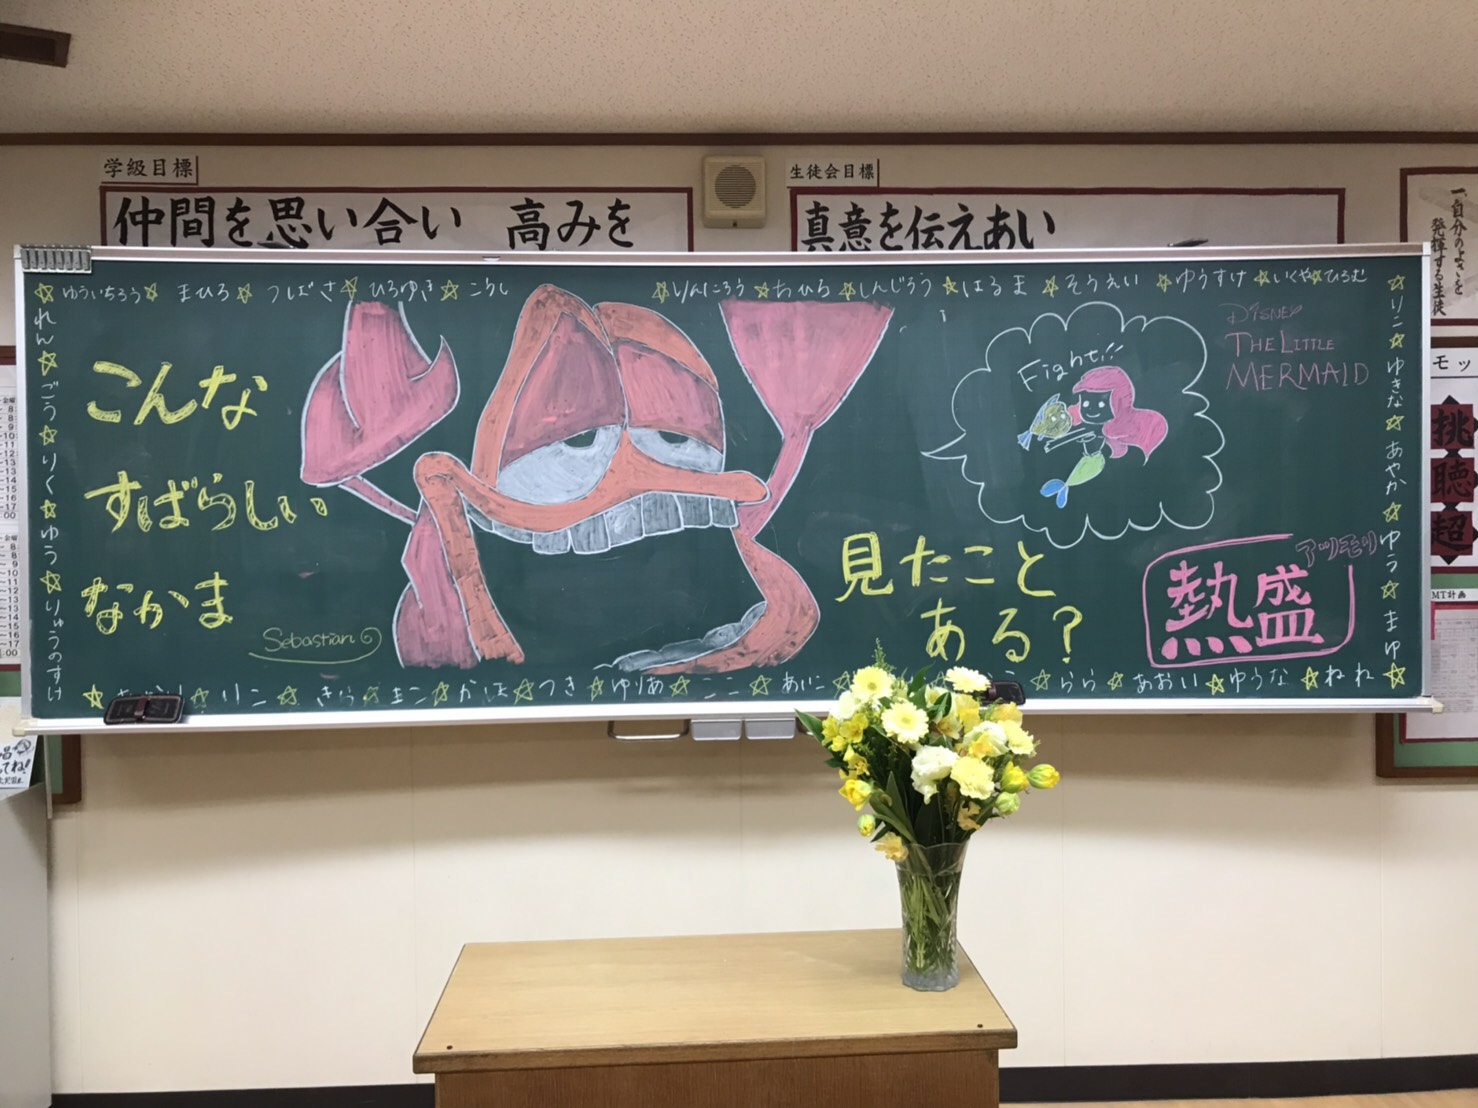 学級目標
仲間を思い合い 高みを
生徒会目標
真意を伝えあい
一、自分のよさを
発揮する生徒
ゆういちろう☆ まひろ☆ つばさ☆ ひろゆき☆ こうし
☆りんたろう☆ちひろ☆しんじろう☆はるま☆そうえい☆ゆうすけ☆いくや☆ひろむ
れん☆ごう☆りく☆ゆう☆りゅうのすけ
こんな
すばらしい
なかま
Sebastian
Fight!!
DISNEY
THE LITTLE
MERMAID
見たこと
ある?
アツモリ
熱盛
りこ☆ゆきな☆あやか☆ゆう☆まゆ
☆りこ☆きら☆まこ☆かほ☆つき☆ゆりあ☆ここ☆あいこ
☆らら☆あおい☆ゆうな☆ねね
モッ
挑
聴
超
MT計画